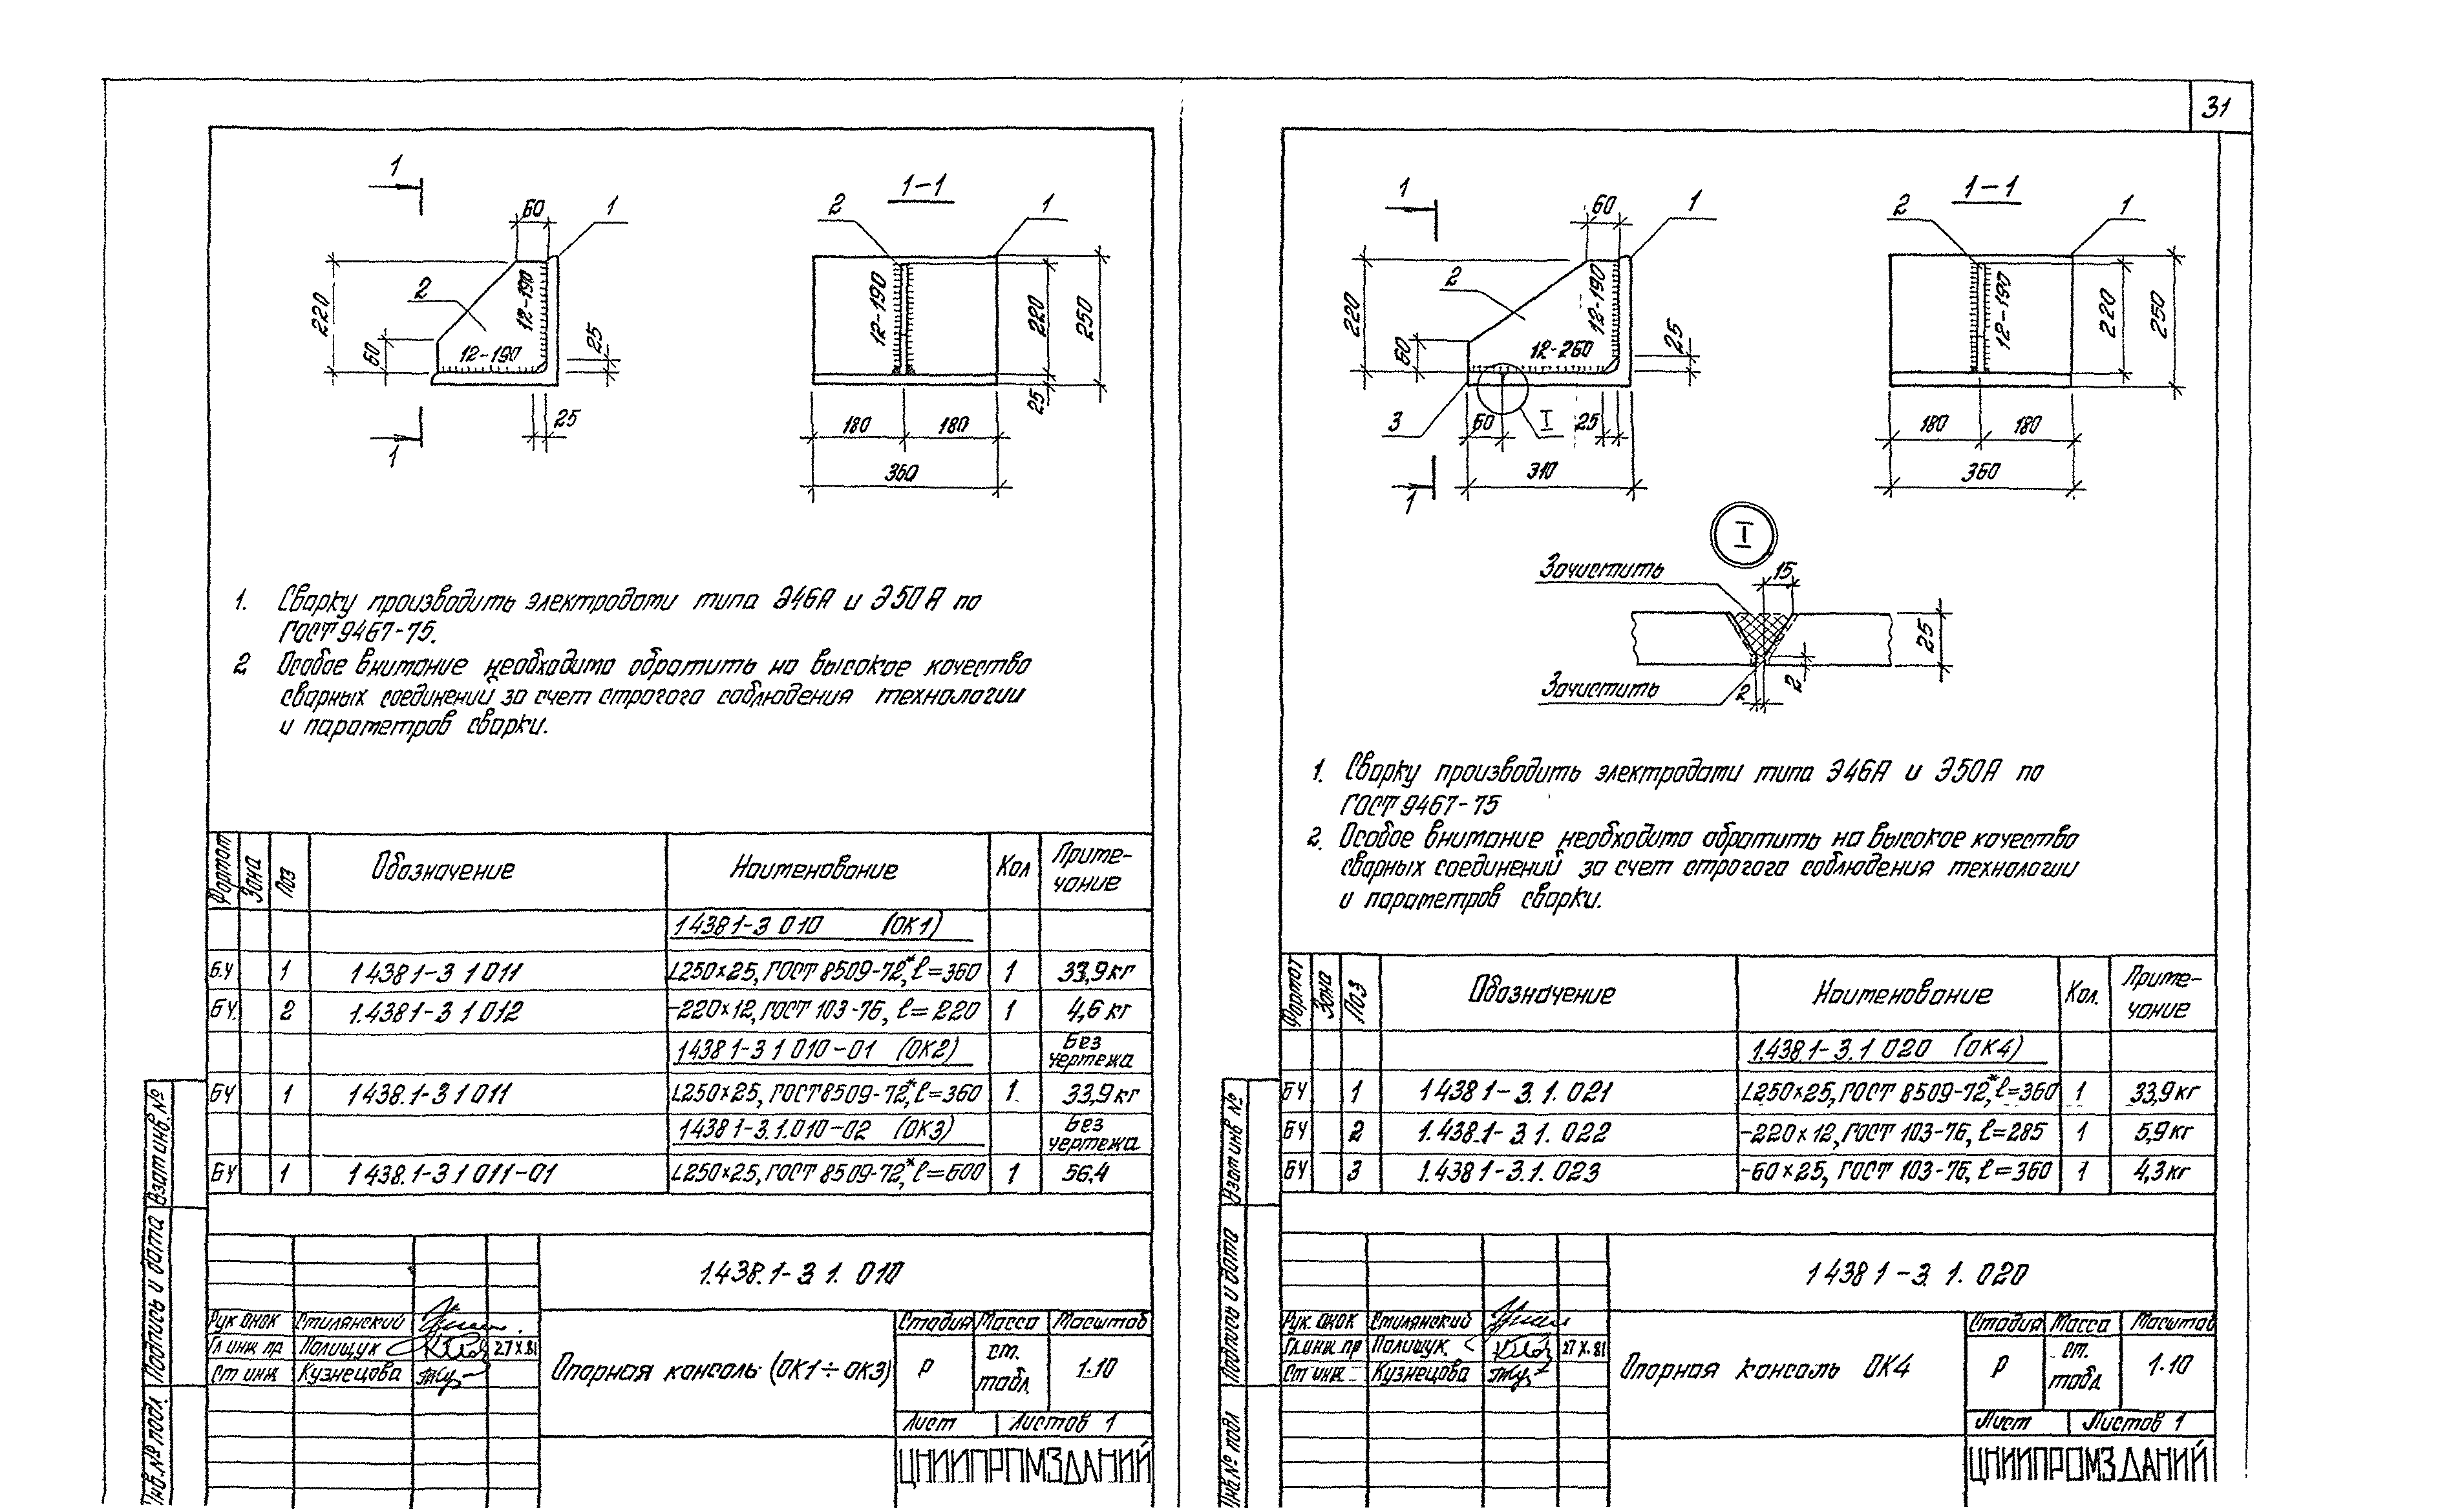 31
1
60
1
1-1
2
1
220
2
12-190
60
12-190
25
25
1
12-190
220
250
25
180
180
360
1. Сварку производить электродами типа Э46А и Э50А по
ГОСТ 9467-75.
2 Особое внимание необходимо обратить на высокое качество
сварных соединений за счет строгого соблюдения технологии
и параметров сварки.
Формат Зона Поз Обозначение Наименование Кол Приме-
чание
1 438 1-3 010 (ОК1)
Б.Ч 1 1 438 1-3 1 011 L250×25, ГОСТ 8509-72,* ℓ=360 1 33,9 кг
БЧ. 2 1.438 1-3 1 012 -220×12, ГОСТ 103-76, ℓ=220 1 4,6 кг
1438 1-3 1 010-01 (ОК2) Без
чертежа
БЧ 1 1 438.1-3 1 011 L250×25, ГОСТ 8509-72,* ℓ=360 1. 33,9 кг
1438 1-3.1.010-02 (ОК3) Без
чертежа
БЧ 1 1 438.1-3 1 011-01 L250×25, ГОСТ 8509-72,* ℓ=600 1 56,4
1.438.1-3 1. 010
Рук ОНОК Смилянский
Гл инж пр Полищук 27 X.81
Ст инж Кузнецова
Опорная консоль (ОК1÷ОК3)
Стадия Масса Масштаб
Р см.
табл 1·10
Лист Листов 1
ЦНИИПРОМЗДАНИЙ
Инв.№ подл. Подпись и дата Взам инв.№
1
60
1
1-1
2
1
220
2
12-190
60
12-260
25
3
60
I
25
310
1
12-190
220
250
180
180
360
I
Зачистить
15
25
Зачистить
2
2
1. Сварку производить электродами типа Э46А и Э50А по
ГОСТ 9467-75
2. Особое внимание необходимо обратить на высокое качество
сварных соединений за счет строгого соблюдения технологии
и параметров сварки.
Формат Зона Поз Обозначение Наименование Кол. Приме-
чание
1.438 1-3.1 020 (ОК4)
БЧ 1 1 438 1-3.1. 021 L250×25, ГОСТ 8509-72,* ℓ=360 1 33,9 кг
БЧ 2 1.438.1-3.1. 022 -220×12, ГОСТ 103-76, ℓ=285 1 5,9 кг
БЧ 3 1.438 1-3.1. 023 -60×25, ГОСТ 103-76, ℓ=360 1 4,3 кг
1 438 1-3. 1. 020
Рук. ОНОК Смилянский
Гл.инж. пр Полищук 27 X.81
Ст инж Кузнецова
Опорная консоль ОК4
Стадия Масса Масштаб
Р см.
табл 1·10
Лист Листов 1
ЦНИИПРОМЗДАНИЙ
Инв № подл Подпись и дата Взам инв №